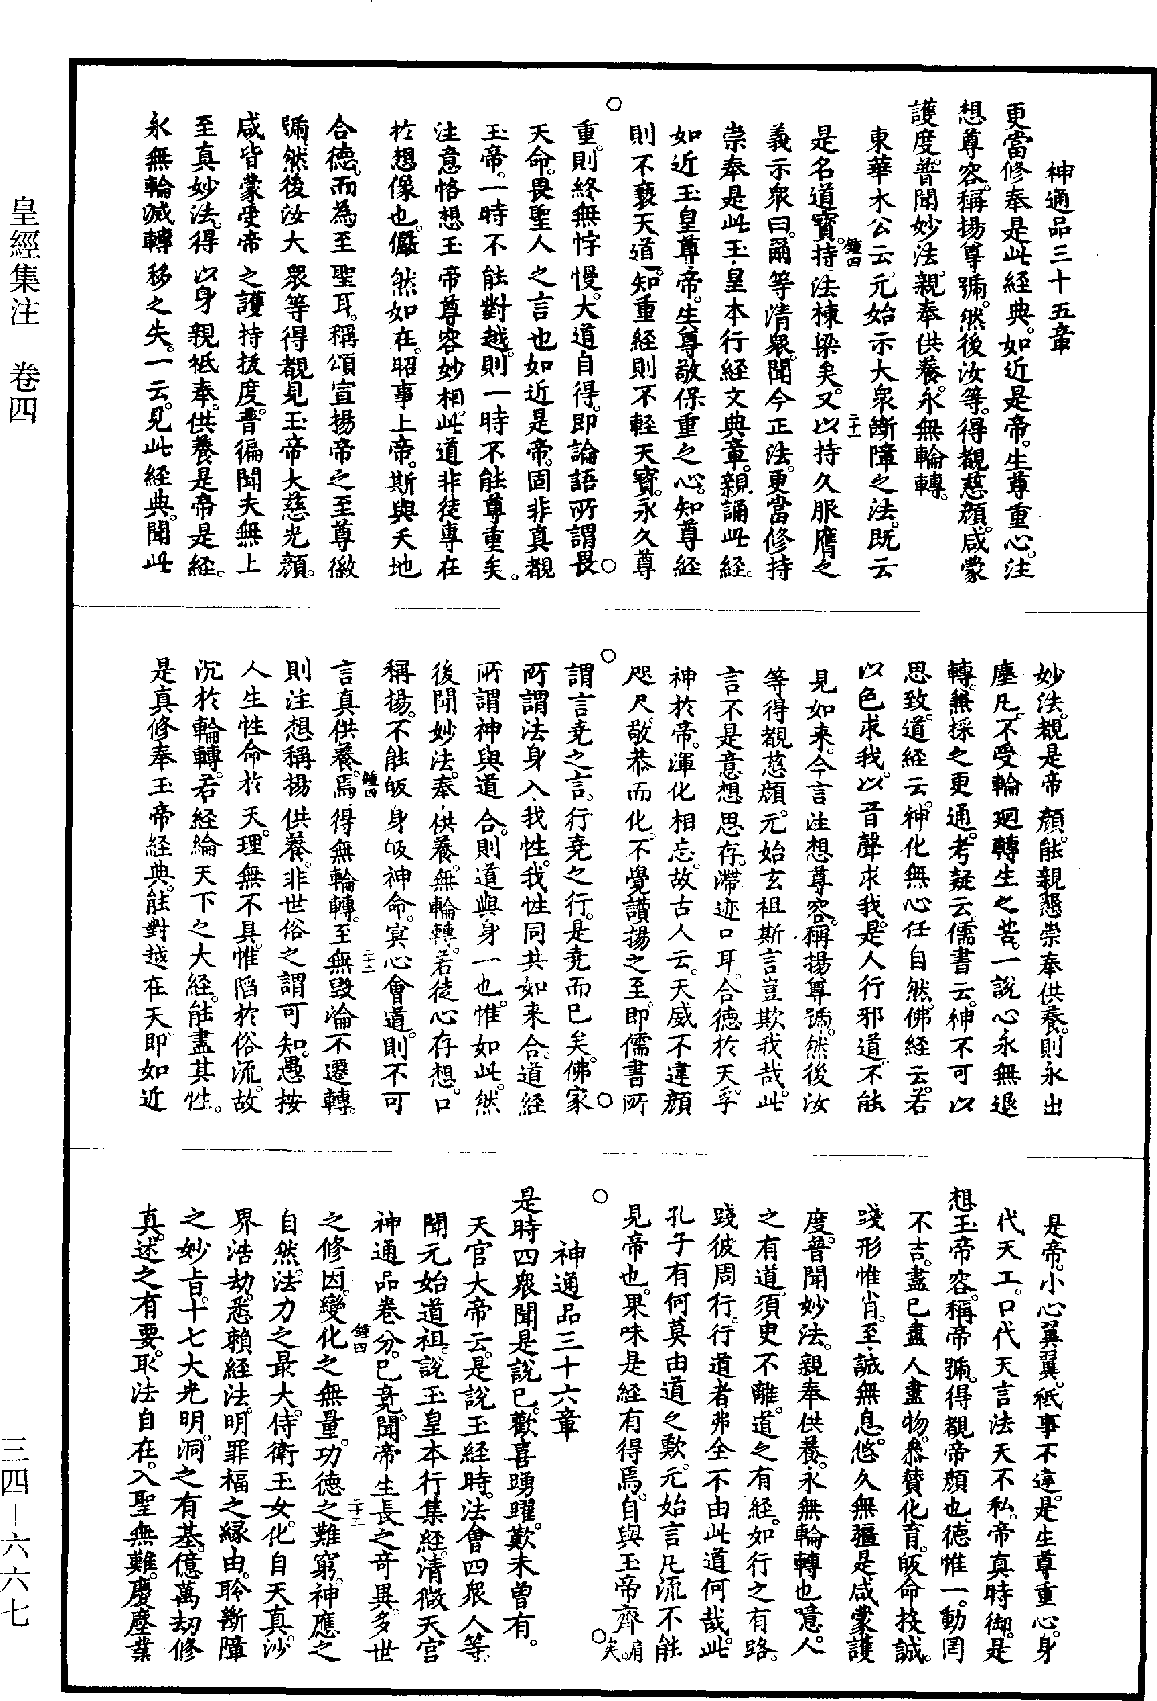 皇經集注　卷四
神通品三十五章
更當修奉是此經典。如近是帝。生尊重心。注
想尊容。稱揚尊號。然後汝等。得覩慈顔。咸蒙
護度。普聞妙法。親奉供養。永無輪轉。
東華木公云。元始示大衆斷障之法。既云
是名道寶。持法棟梁矣。又以持久服膺之
義示衆曰。爾等清衆。聞今正法。更當修持
崇奉是此玉皇本行經文典章。親誦此經
如近玉皇尊帝。生尊敬保重之心。知尊經
則不褻天道。知重經則不輕天寶。永久尊
重。則終無悖慢。大道自得。即論語所謂畏
天命。畏聖人之言也。如近是帝。固非真覩
玉帝。一時不能對越。則一時不能尊重矣。
注意恪想玉帝尊容妙相。此道非徒專在
於想像也。儼然如在。昭事上帝。斯與天地
合德。而為至聖耳。稱頌宣揚帝之至尊徽
號。然後汝大衆等得覩見玉帝大慈光顔。
咸皆蒙受帝之護持拔度。普徧聞夫無上
至真妙法。得以身親祗奉。供養是帝是經。
永無輪減轉移之失。一云。見此經典。聞此
妙法。覩是帝顔。能親懇崇奉供養。則永出
塵凡。不受輪迴轉生之苦。一說心永無退
轉。兼採之更通。考疑云。儒書云。神不可以
思致。道經云。神化無心任自然。佛經云。若
以色求我。以音聲求我。是人行邪道。不能
見如來。今言注想尊容。稱揚尊號。然後汝
等得覩慈顔。元始玄祖斯言豈欺我哉。此
言不是意想思存。滯迹口耳。合德於天。孚
神於帝。渾化相忘。故古人云。天威不違顔
咫尺。敬恭而化。不覺讚揚之至。即儒書所
謂言堯之言。行堯之行。是堯而已矣。佛家
所謂法身入我性。我性同共如來合。道經
所謂神與道合。則道與身一也。惟如此。然
後聞妙法。奉供養。無輪轉。若徒心存想。口
稱揚。不能皈身皈神命。冥心會道。則不可
言真供養焉。得無輪轉。至無毀淪不遷轉。
則注想稱揚供養。非世俗之謂可知。愚按
人生性命於天。理無不具。惟陷於俗流。故
沉於輪轉。若經綸天下之大經。能盡其性。
是真修奉玉帝經典。能對越在天。即如近
是帝。小心翼翼。祗事不違。是生尊重心。身
代天工。口代天言。法天不私。帝真時御。是
想玉帝容。稱帝號。得覩帝顔也。德惟一。動罔
不吉。盡己盡人盡物。叅贊化育。皈命投誠。
踐形惟肖。至誠無息。悠久無疆。是咸蒙護
度。普聞妙法。親奉供養。永無輪轉也。噫。人
之有道。須臾不離。道之有經。如行之有路。
踐彼周行。行道者弗全不由此道何哉。此
孔子有何莫由道之歎。元始言凡流不能
見帝也。果味是經有得焉。自與玉帝齊肩矣。
神通品三十六章
是時四衆聞是說已。歡喜踴躍。歎未曾有。
天官大帝云。是說玉經時。法會四衆人等。
聞元始道祖。說玉皇本行集經。清微天宫
神通品卷分。已竟聞帝生長之奇異。多世
之修因。變化之無量。功德之難窮。神應之
自然。法力之最大。侍衛玉女。化自天真。沙
界浩劫。悉賴經法。明罪福之緣由。聆斷障
之妙旨。十七大光明。洞之有基。億萬劫修
真。述之有要。取法自在。入聖無難。慶塵業
鍾四
二十一
鍾四
二十二
鍾四
二十三
三四—六六七